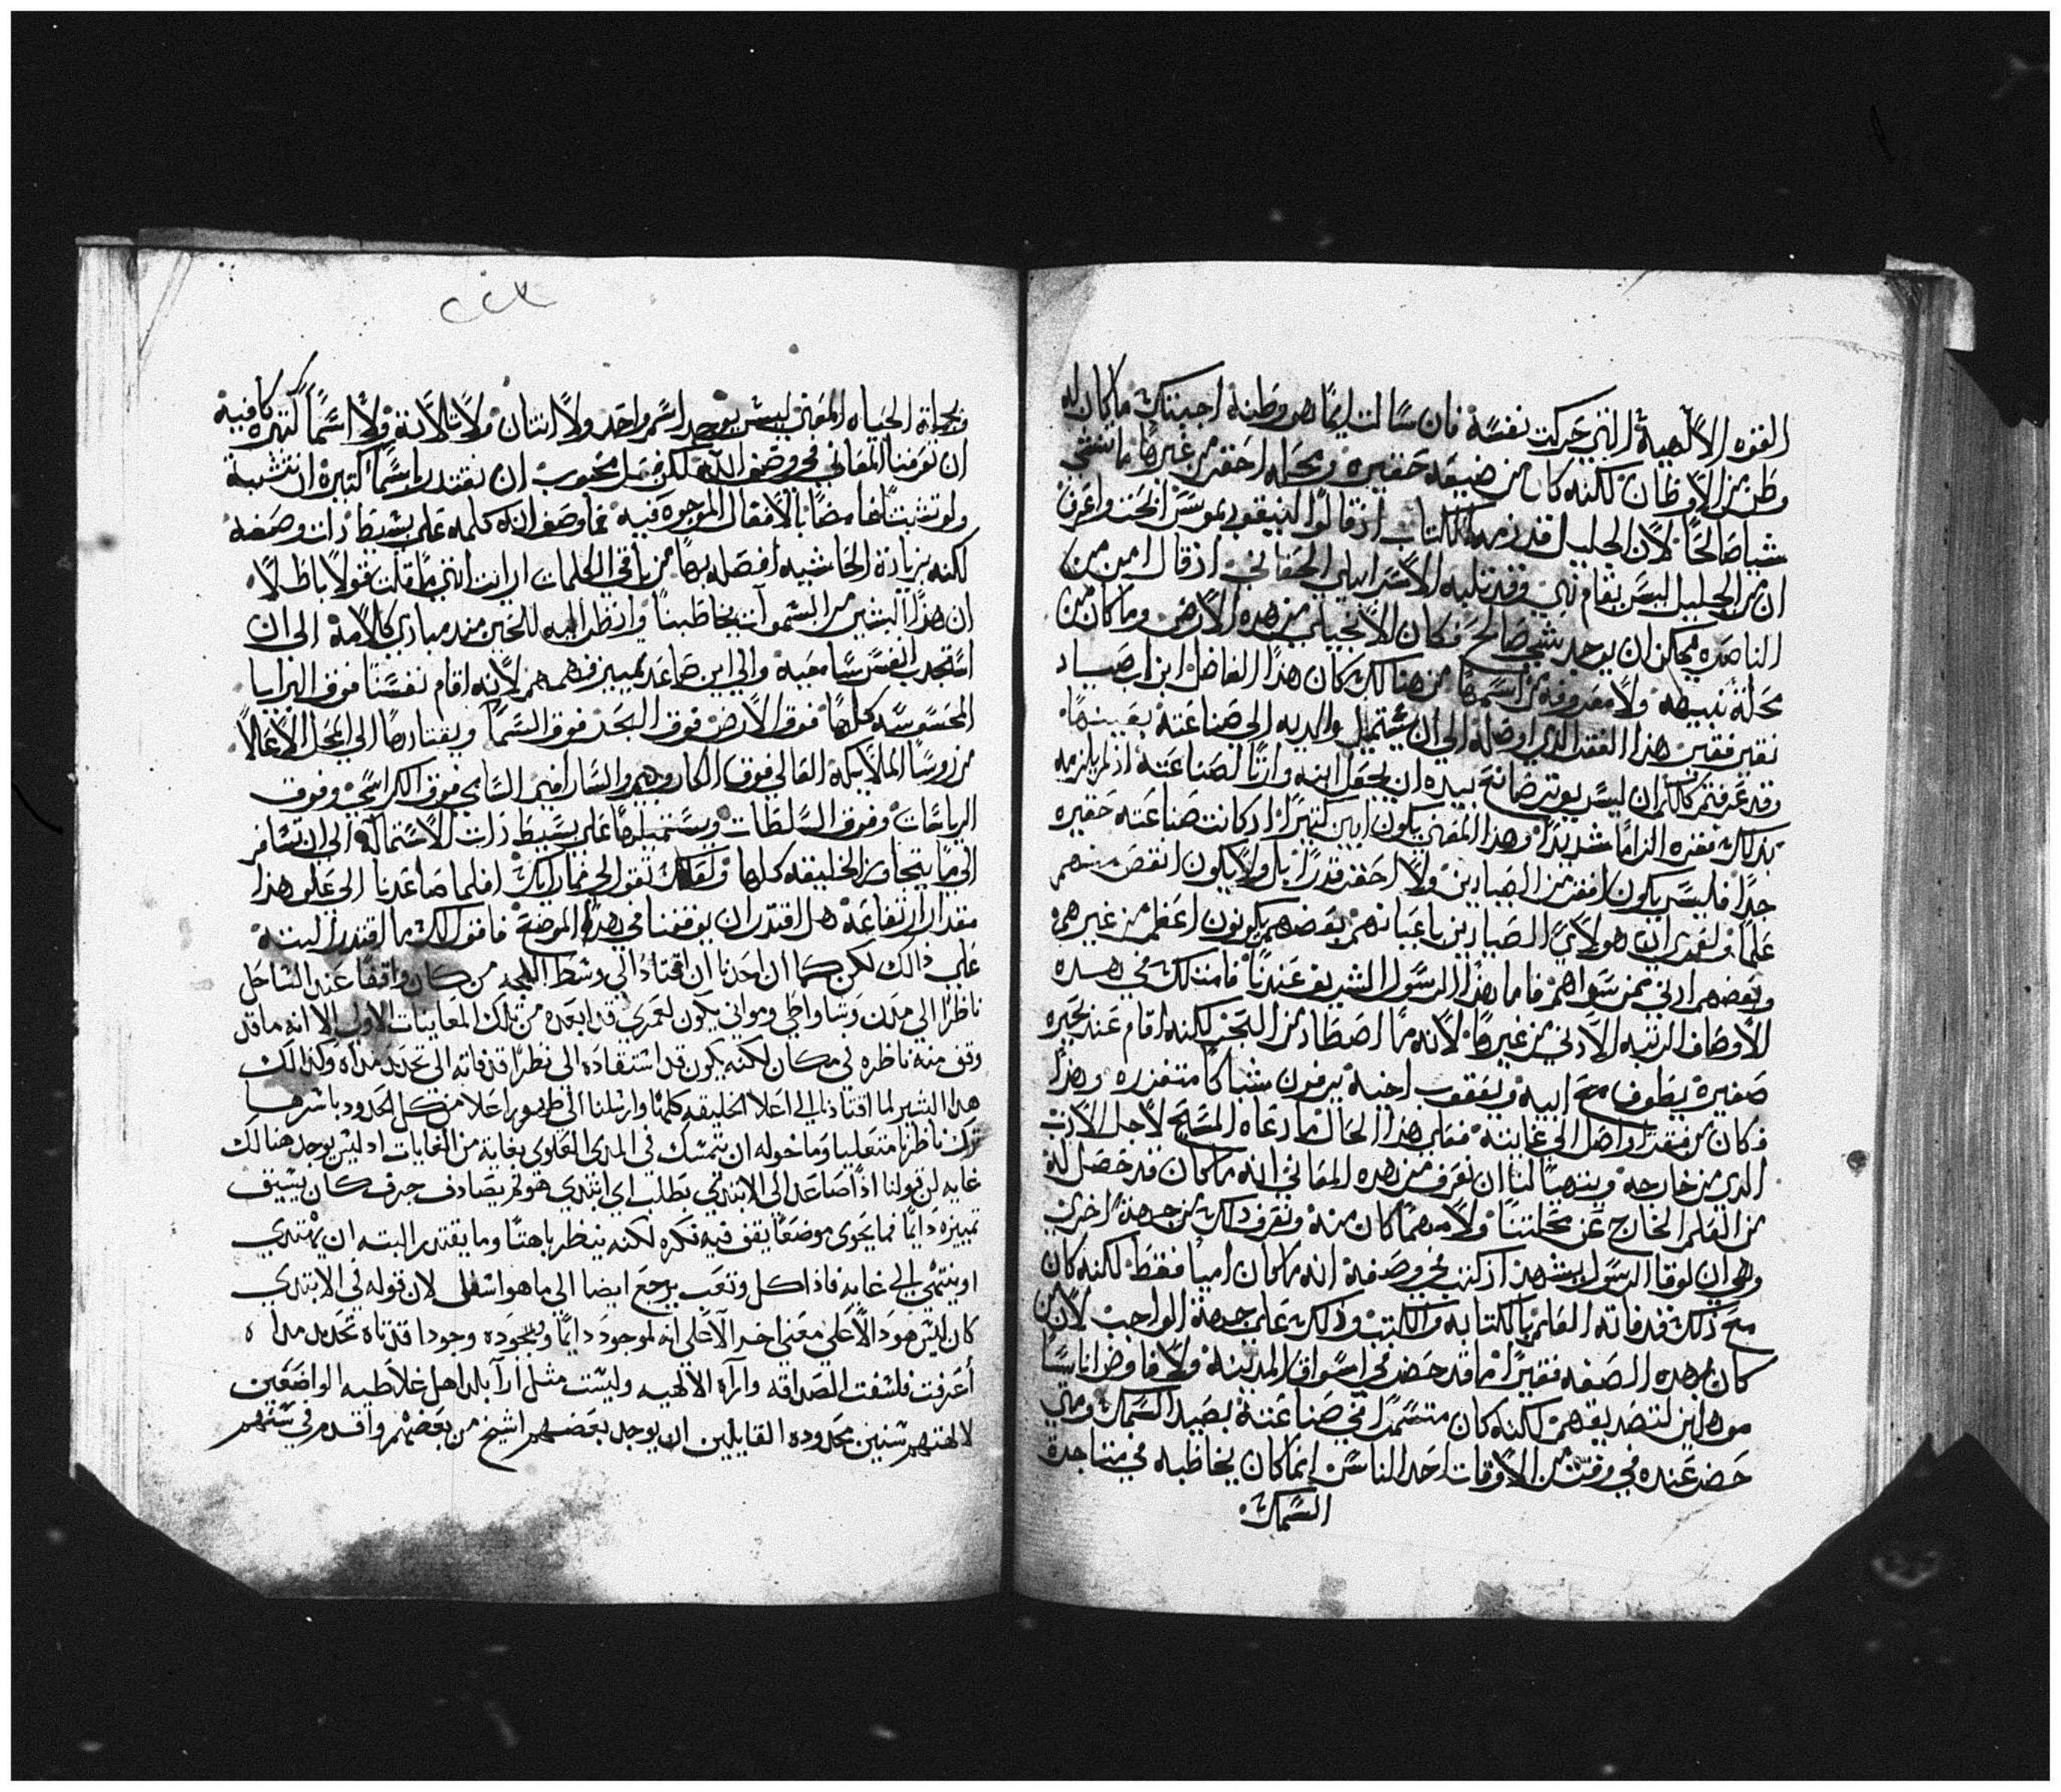 القوه الالهية التي حركت نفسة فان سالت ايما هو وطنة اجبتك ما كان له
وطن من الاوطان لكنه كان من ضيعه حقيره ومحله احقر من غيرها ما تنشي
شيا صالحا لان الجليل قد ذمه الكتاب اذ قالوا لنيقوديموس افحص واعرف
ان من الجليل ليس يقام نبي وقد ثلبه الاسراييلي الحقاني اذ قال امن من
الناصره يمكن ان يوجد شي صالح فكان الانجيلي من هذه الارض وما كان من
محلة نبيهه ولا معروفة من اسمها من هنالك كان هذا الفاضل ابن اب صياد
فقير فقير هذا الفقر الذي اوصلة الي ان يشتمل والديه الي صناعتة بعينها
وقد عرفتم كلكم ان ليس يوثر صانع بيده ان يجعل ابنه وارثا لصناعتة اذ لم يلزمه
بذلك فقره الزاما شديدا وهذا المعني يكون ابين كثيرا اذ كانت صناعته حقيره
جدا فليس يكون افقر من الصيادين ولا احقر قدرا بل ولا يكون انقص منهم
علما ولعمري ان هولاي الصيادين باعيانهم بعضهم يكونون اعظم من غيرهم
وبعضهم ادني ممن سواهم فاما هذا الرسول الشريف عندنا فامتلك في هذه
الاوصاف الرتبه الادني من غيرها لانه ما اصطاد من البحر لكنه اقام عند بحيره
صغيرة يطوف مع ابيه ويعقوب اخية يرفون شباكا متفزره وهذا
فكان من فقر واصل الي غايتة فعلي هذا الحال لما دعاه المسيح لاجل الادب
الذي من خارجه ويتهيا لنا ان نعرف من هذه المعاني انه ما كان قد حصل له
من العلم الخارج عن محلتنا ولا مهما كان منة ونعرف ذلك من جهة اخري
وهي ان لوقا الرسول يشهد اذ كتب في وصفة انه ما كان اميا فقط لكنه كان
مع ذلك قد فاته العلم بالكتابه والكتب وذلك علي جهة الواجب لان من
كان بهذه الصفه فقيرا ما قد حضر في اسواق المدينة ولا فاوض اناسا
موهلين لتصديقهم لكنه كان متسمرا في صناعتة بصيد السمك ومتي
حضر عنده في وقت من الاوقات احد الناس انما كان يخاطبه في متاجرة
السمك
٢٢٣
وبجملة الحياه المعني ليس يوجد اسم واحد ولا اثنان ولا ثلاثة ولا اسما كثيره كافية
ان تعرفنا المعاني في وصف الله لكن فعل محبوب ان نقتدر باسما كثيره ان نتشبة
ولو تشبثا غامضا بالافعال الموجوده فيه فما وصف انه كلمه علي بسيط ذات وصفه
لكنه بزيادة الحاشيه افصله بها من باقي الكلمات ارايت انني ما قلت قولا باطلا
ان هذا البشير من السموات يخاطبنا وانظر اليه للحين منذ مبادي كلامة الي ان
استجدب انفس سامعيه والي اين صاعد بمييز فهمهم لانه اقام نفسنا فوق البرايا
المحسوسه كلها فوق الارض فوق البحر فوق السما ويقتادها الي المحل الاعلا
من روسا الملايكه العالي فوق الكاروبيم والسارافيم السامي فوق الكراسي وفوق
الرياسات وفوق السلطات ويستميلها علي بسيط ذات الاستماله الي ان تسافر
الي ما يتجاوز الخليقه كلها ولعلك تقول لي فما رايك افلما صاعدنا الي علو هذا
مقدار ارتفاعه هل اقتدر ان يوقفنا في هذا الموضع فاقول لك ما اقتدر البتة
علي ذالك لكن كما ان احدنا ان اقتاد الي وسط اللجه من كان واقفا عند الساحل
ناظرا الي مدن وشواطي ومواني يكون لعمري قد ابعده من تلك المعاينات الاولي الا انه ما قد
وقف منه ناظره في مكان لكنه يكون قد اشتقاده الي نظر قد فاته الي تحديد مداه وكذالك
هذا البشير لما اقتادنا الي اعلا الخليقه كلها وارسلنا الي ظهور اعلا من كل الحدود باسرها
ترك ناظرنا متعليا وما خوله ان يتمسك في المدي العلوي بغاية من الغايات اذ ليس يوجد هنالك
غايه لن قولنا اذا صاعد الي الابتدي يطلب اي ابتدي هو ثم يصادف حرف كان يسبق
تمييزه دايما فما يحوي موضعا يقف فيه فكره لكنه ينظر باهتا وما يقتدر البته ان يهتدي
او ينتهي الي غايه فاذا كل وتعب يرجع ايضا الي ما هو اسفل لان قوله في الابتدي
كان ليس هو دالا علي معني اخر الا علي انه لموجود دايما وبجوده وجودا قد تاه تحديد مداه
اعرفت فلسفت الصداقه وآراه الالهيه وليست مثل آرآ بلد اهل غلاطيه الواضعين
لالهتهم سنين محدوده القايلين ان يوجد بعضهم اشيخ من بعضهم واقدم في سنهم